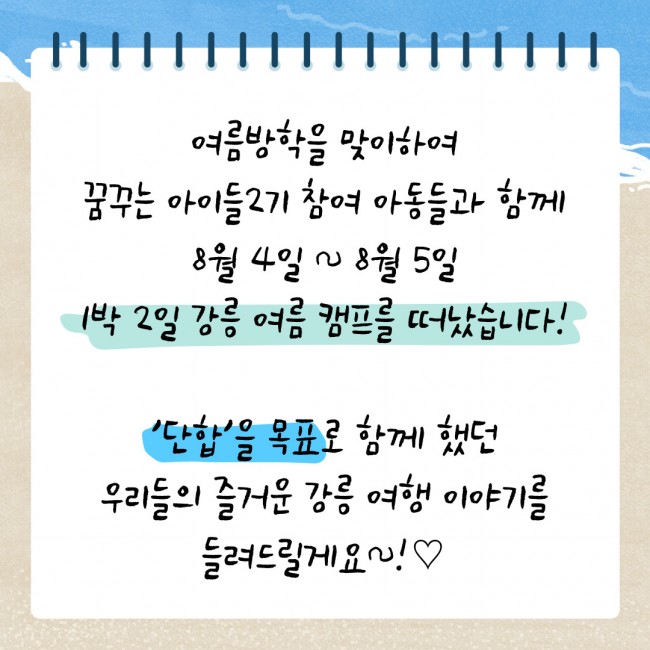 여름방학을 맞이하여
꿈꾸는 아이들2기 참여 아동들과 함께
8월 4일 ~ 8월 5일
1박 2일 강릉 여름 캠프를 떠났습니다!
'단합'을 목표로 함께 했던
우리들의 즐거운 강릉 여행 이야기를
들려드릴게요~!♡